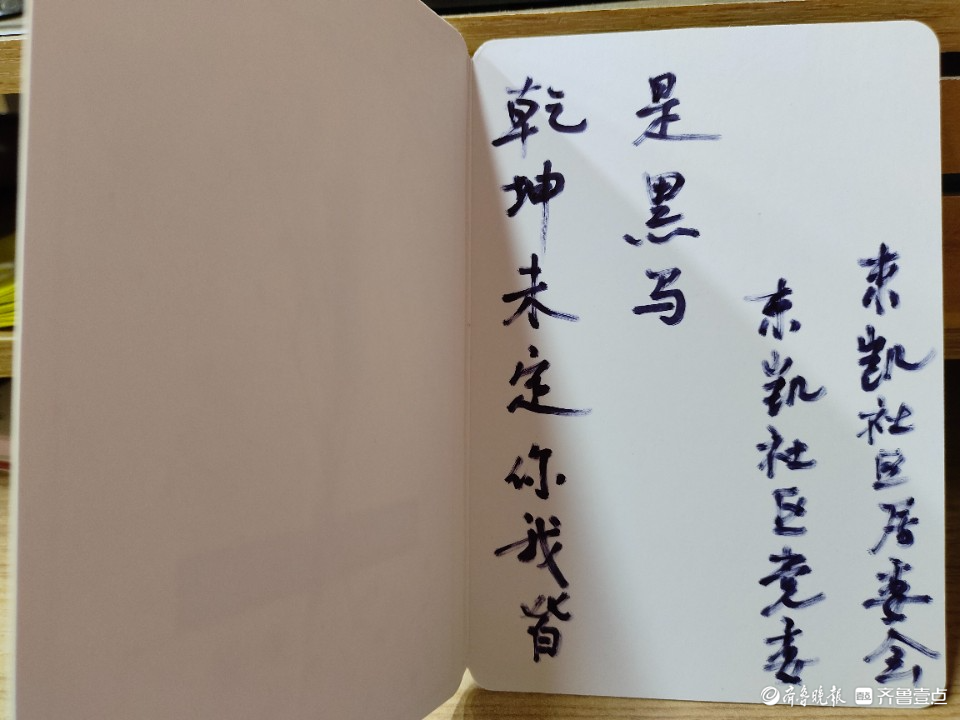 乾坤未定你我皆
是黑马
东凯社区党委
东凯社区居委会
齐鲁晚报 齐鲁壹点